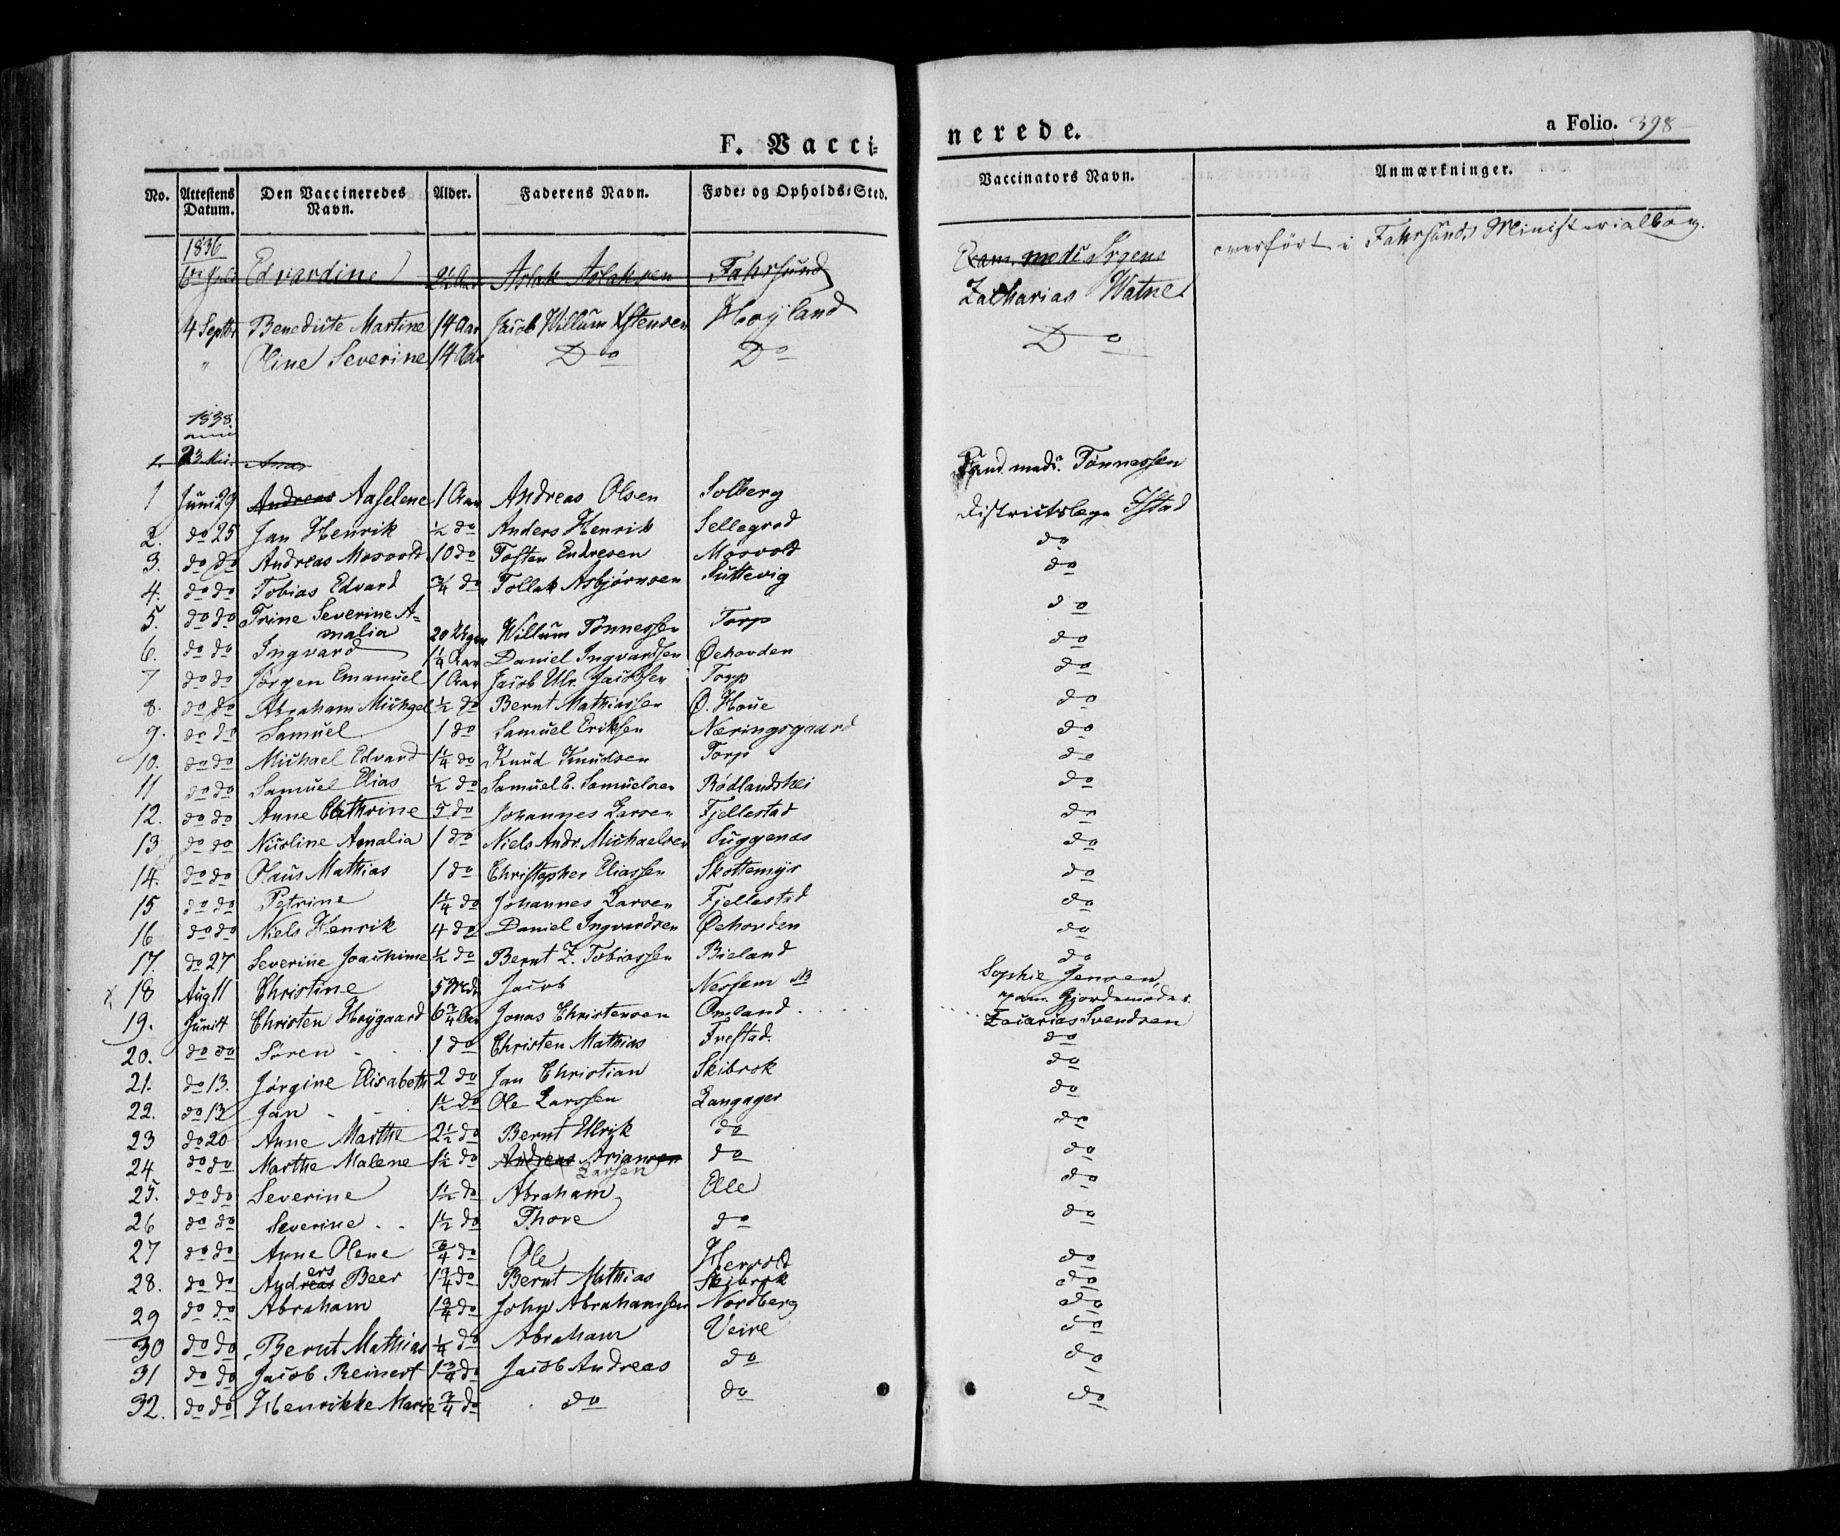 F. Vacci=
nerede.
a Folio. 398
No. Attestens Datum. Den Vaccineredes Navn. Alder. Faderens Navn. Føde= og Opholds=Sted. Vaccinators Navn. Anmærkninger.
1836
Edvardine Aslak Aslaksen Fahrsund Exam. med: Irgens overført i Fahrsunds Ministerialbog.
4 Septbr Benedicte Martine 14 Aar Jacob Willum Høyland Zacharias Watne
" Oline Severine 14 Aar Do Do Do
1838.
1. 23 Mai Cand. med. Tønnessen
1 Juni 29 Andreas Aaselene 1 Aar Andreas Olsen Solberg Districtslæge Istad
2. do 25 Jan Henrik ½ do Anders Henrik Sellegrod do
3. do do Andreas Mosvold 10 do Tosten Endresen Mosvold do
4. do do Tobias Edvard ¾ do Tollak Asbjørnsen Suttevig do
5. do do Trine Severine A=
malia 20 Uger Willum Tønnessen Torp do
6. do do Ingvard 1¼ Aar Daniel Ingvardsen Øehovden do
7 do do Jørgen Emanuel 1 Aar Jacob Ulr. Jacobsen Torp do
8. do do Abraham Michael ½ do Bernt Mathiassen Ø. Houe do
9. do do Samuel 1 do Samuel Eriksen Næringsgaard do
10. do do Michael Edvard 1¼ do Knud Knudsen Torp do
11 do do Samuel Elias ½ do Samuel E. Samuelsen Rødlandshei do
12. do do Anne Cathrine 5 do Johannes Larsen Fjellestad do
13 do do Nicoline Amalia 1 do Niels Andr. Michaelsen Suggenæs do
14. do do Olaus Mathias 1 do Christopher Eliassen Skottemyr do
15 do do Petrine 1¼ do Johannes Larsen Fjellestad do
16 do do Niels Henrik 4 do Daniel Ingvardsen Øehovden do
17. do 27 Severine Joachime ½ do Bernt Z. Tobiassen Bieland do
x 18 Aug 11 Christine 5 Md Jacob Nessem NB Sophie Jensen,
exam. Gjordemoder
19. Juni 4 Christen Høygaard 6¾ Aar Jonas Christensen Omland Zacarias Svendsen
20. do do Søren 1 do Christen Mathias Frestad. do
21. do 13. Jørgine Elisabeth 2 do Jan Christian Skibrok do
22. do 13 Jan 1½ do Ole Larssen Langager do
23 do 20 Anne Marthe 2½ do Bernt Ulrik do do
24 do do Marthe Malene 1½ do Andreas Ariansen Larsen do do
25. do do Severine 1½ do Abraham Elle do
26 do do Severine 1½ do Thore do do
27 do do Anne Olene ¾ do Ole Hervold do
28. do do Andreas ers Beer 1¾ do Bernt Mathias Skibrok do
29 do do Abraham 1¾ do John Abrahamsen Nordberg do
30 do do Bernt Mathias ¼ do Abraham Veire do
31 do do Jacob Reinert 1¾ do Jacob Andreas do do
32. do do Henrikke Marie ¾ do do do do